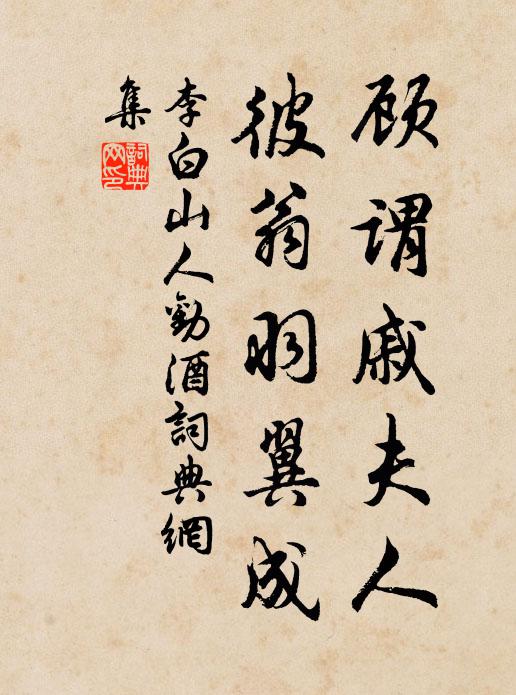 顾谓戚夫人
彼翁羽翼成
李白山人勸酒詞典網
集
詞典
网印